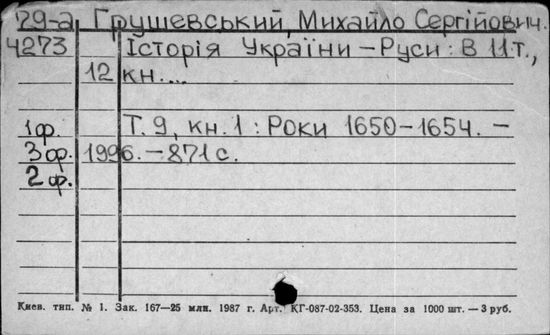 '79-а Грушевський, Михайло Сергійович.
4273 Історія України – Руси : В 11 т.,
12 кн....
1 ф. Т. 9, кн. 1 : Роки 1650–1654. –
3 ф. 1996. – 871 с.
2 ф.
Киев. тип. № 1. Зак. 167—25 млн. 1987 г. Арт. КГ-087-02-353. Цена за 1000 шт. — 3 руб.